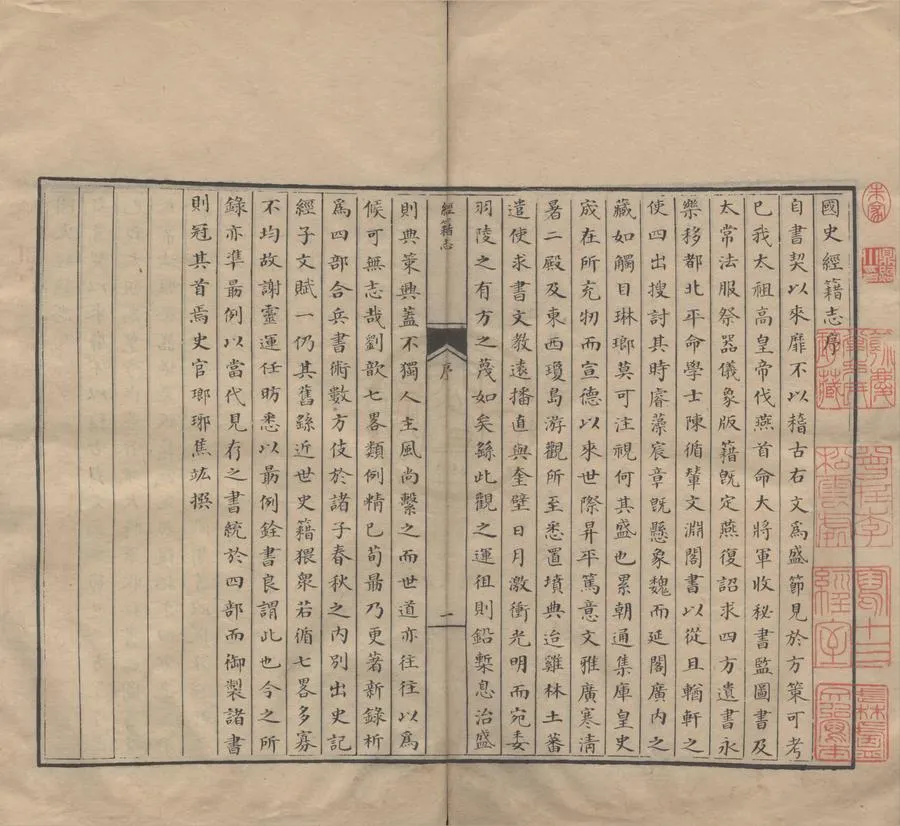 國史經籍志序
自書契以來靡不以稽古右文為盛節見於方策可考
已我太祖高皇帝伐燕首命大將軍收秘書監圖書及
太常法服祭器儀象版籍既定燕復詔求四方遺書永
樂移都北平命學士陳循輦文淵閣書以從且輶軒之
使四出搜討其時睿藻宸章既懸象魏而延閣廣內之
藏如觸目琳瑯莫可注視何其盛也累朝通集庫皇史
宬在所充牣而宣德以來世際昇平篤意文雅廣寒清
暑二殿及東西瓊島游觀所至悉置墳典迨雞林土蕃
遣使求書文教遠播直與奎壁日月激衝光明而宛委
羽陵之有方之蔑如矣繇此觀之運徂則鉛槧息治盛
經籍志
序
一
則典策興蓋不獨人主風尚繫之而世道亦往往以為
候可無志哉劉歆七畧類例精已荀勗乃更著新錄析
為四部合兵書術數方伎於諸子春秋之內別出史記
經子文賦一仍其舊繇近世史籍猥衆若循七畧多寡
不均故謝靈運任昉悉以勗例銓書良謂此也今之所
錄亦準勗例以當代見存之書統於四部而御製諸書
則冠其首焉史官瑯琊焦竑撰